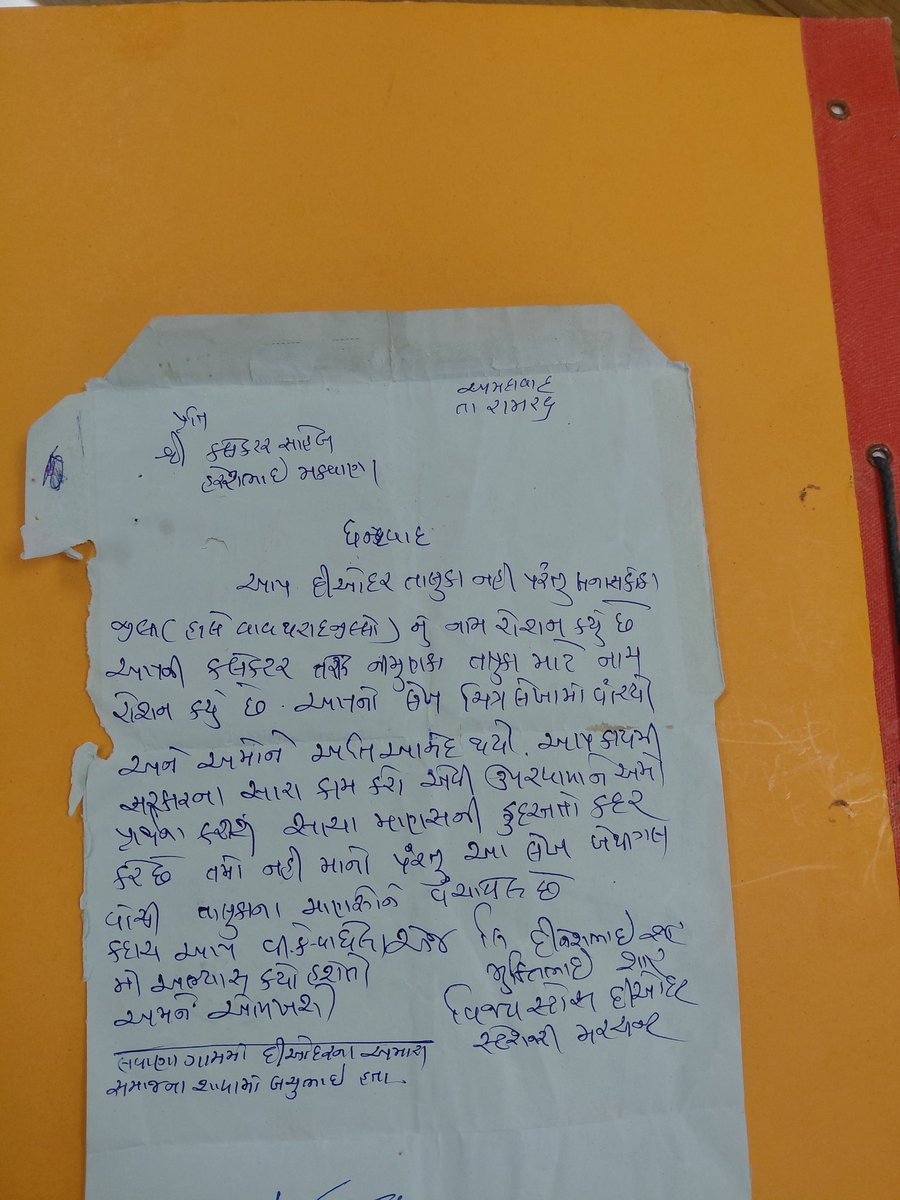 અમદાવાદ
તા
પ્રતિ
શ્રી કલેકટર સાહેબ
હરેશભાઇ મકવાણા
ધન્યવાદ
આપ દીઓદર તાલુકા નહી પરંતુ બનાસકાંઠા
જીલ્લા (હાલે વાવ થરાદ જીલ્લો) નું નામ રોશન કર્યું છે
આપની કલેકટર તરીકે નીમણુંક તાલુકા માટે નામ
રોશન કર્યું છે. આપનો લેખ ચિત્રલેખામાં વાંચ્યો
અને અમોને અતિ આનંદ થયો. આપ કાયમી
સરકારના સારા કામ કરો એવી ઉપરવાળાને અમો
પ્રાર્થના કરીશું સાચા માણસની કુદરત કદર
કરે છે તમો નહી માનો પરંતુ આ લેખ બે પાગલ
વાંચી તાલુકાના માણસોને વંચાવેલ છે
કદાચ આપ વી.કે.વાઘેલા કોલેજ
માં અભ્યાસ કર્યો હશે તો
અમને ઓળખશો
લિ દીનેશભાઇ શાહ
મુક્તિભાઇ શાહ
વિજય સ્ટોર્સ દીઓદર
સ્ટેશનરી મરચન્ટ
લવાણા ગામમાં દીઓદરના અમારા
સમાજના શાળામાં બચુભાઇ હતા.